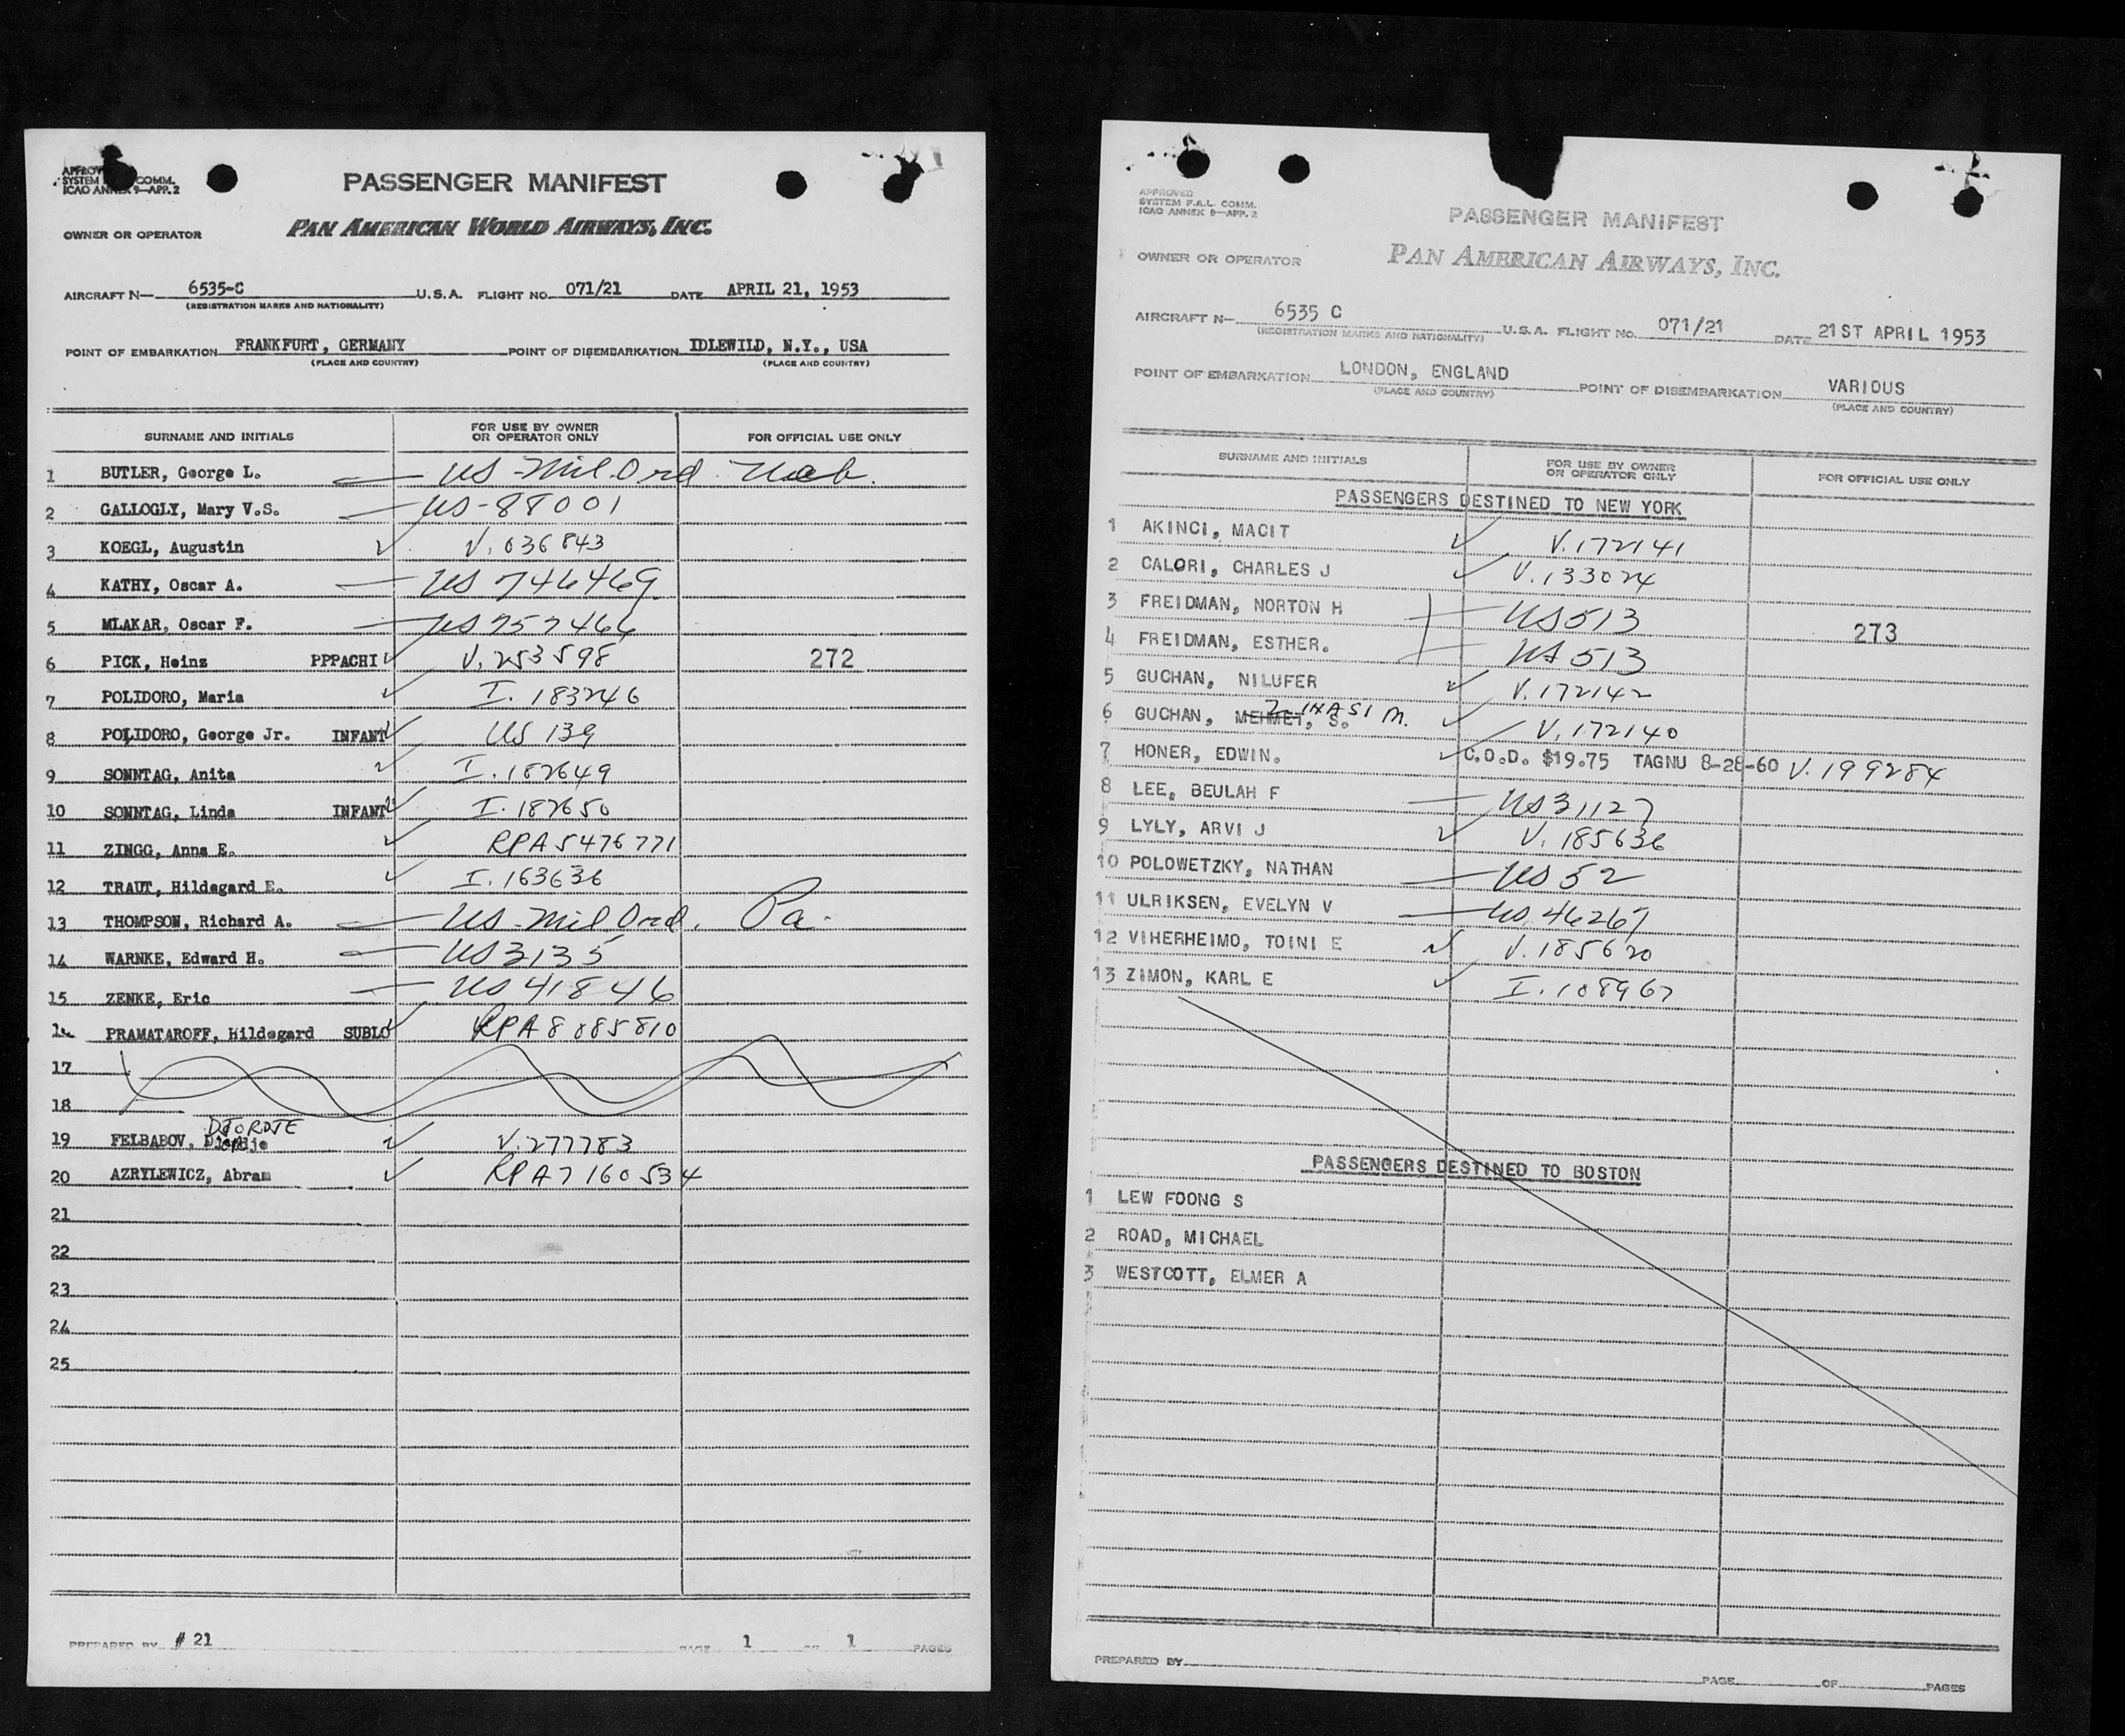 APPROV
SYSTEM COMM.
ICAO ANNEX 9—APP. 2
PASSENGER MANIFEST
OWNER OR OPERATOR
PAN AMERICAN WORLD AIRWAYS, INC.
AIRCRAFT N— 6535-C U.S.A. FLIGHT NO. 071/21 DATE APRIL 21, 1953
(REGISTRATION MARKS AND NATIONALITY)
POINT OF EMBARKATION FRANKFURT, GERMANY POINT OF DISEMBARKATION IDLEWILD, N.Y., USA
(PLACE AND COUNTRY) (PLACE AND COUNTRY)
SURNAME AND INITIALS FOR USE BY OWNER OR OPERATOR ONLY FOR OFFICIAL USE ONLY
1 BUTLER, George L. US Mil Ord
2 GALLOGLY, Mary V.S. US-88001
3 KOEGL, Augustin V. 036843
4 KATHY, Oscar A. US 746469
5 MLAKAR, Oscar F. US 757466
6 PICK, Heinz PPPACHI V. 253598 272
7 POLIDORO, Maria I. 183246
8 POLIDORO, George Jr. INFANT US 139
9 SONNTAG, Anita I. 182649
10 SONNTAG, Linda INFANT I. 182650
11 ZINGG, Anna E. RPA 5476771
12 TRAUT, Hildegard E. I. 163636
13 THOMPSON, Richard A. US Mil Ord. Pa.
14 WARNKE, Edward H. US 3135
15 ZENKE, Eric US 41846
16 PRAMATAROFF, Hildegard SUBLO RPA 8085810
17
18
DJORDJE
19 FELBABOV, V. 277783
20 AZRYLEWICZ, Abram RPA 7160534
21
22
23
24
25
PREPARED BY # 21 PAGE 1 OF 1 PAGES
APPROVED
SYSTEM F.A.L. COMM.
ICAO ANNEX 9—APP. 2
PASSENGER MANIFEST
OWNER OR OPERATOR
PAN AMERICAN AIRWAYS, INC.
AIRCRAFT N— 6535 C U.S.A. FLIGHT NO. 071/21 DATE 21ST APRIL 1953
(REGISTRATION MARKS AND NATIONALITY)
POINT OF EMBARKATION LONDON, ENGLAND POINT OF DISEMBARKATION VARIOUS
(PLACE AND COUNTRY) (PLACE AND COUNTRY)
SURNAME AND INITIALS FOR USE BY OWNER OR OPERATOR ONLY FOR OFFICIAL USE ONLY
PASSENGERS DESTINED TO NEW YORK
1 AKINCI, MACIT V. 172141
2 CALORI, CHARLES J V. 133024
3 FREIDMAN, NORTON H US 513 273
4 FREIDMAN, ESTHER. US 513
5 GUCHAN, NILUFER V. 172142
6 GUCHAN, MEHMET, S. M. V. 172140
7 HONER, EDWIN. C.O.D. $19.75 TAGNU 8-28-60 V. 199284
8 LEE, BEULAH F US 31127
9 LYLY, ARVI J V. 185636
10 POLOWETZKY, NATHAN US 52
11 ULRIKSEN, EVELYN V US 46267
12 VIHERHEIMO, TOINI E V. 185620
13 ZIMON, KARL E I. 108967
PASSENGERS DESTINED TO BOSTON
1 LEW FOONG S
2 ROAD, MICHAEL
3 WESTCOTT, ELMER A
PREPARED BY PAGE OF PAGES